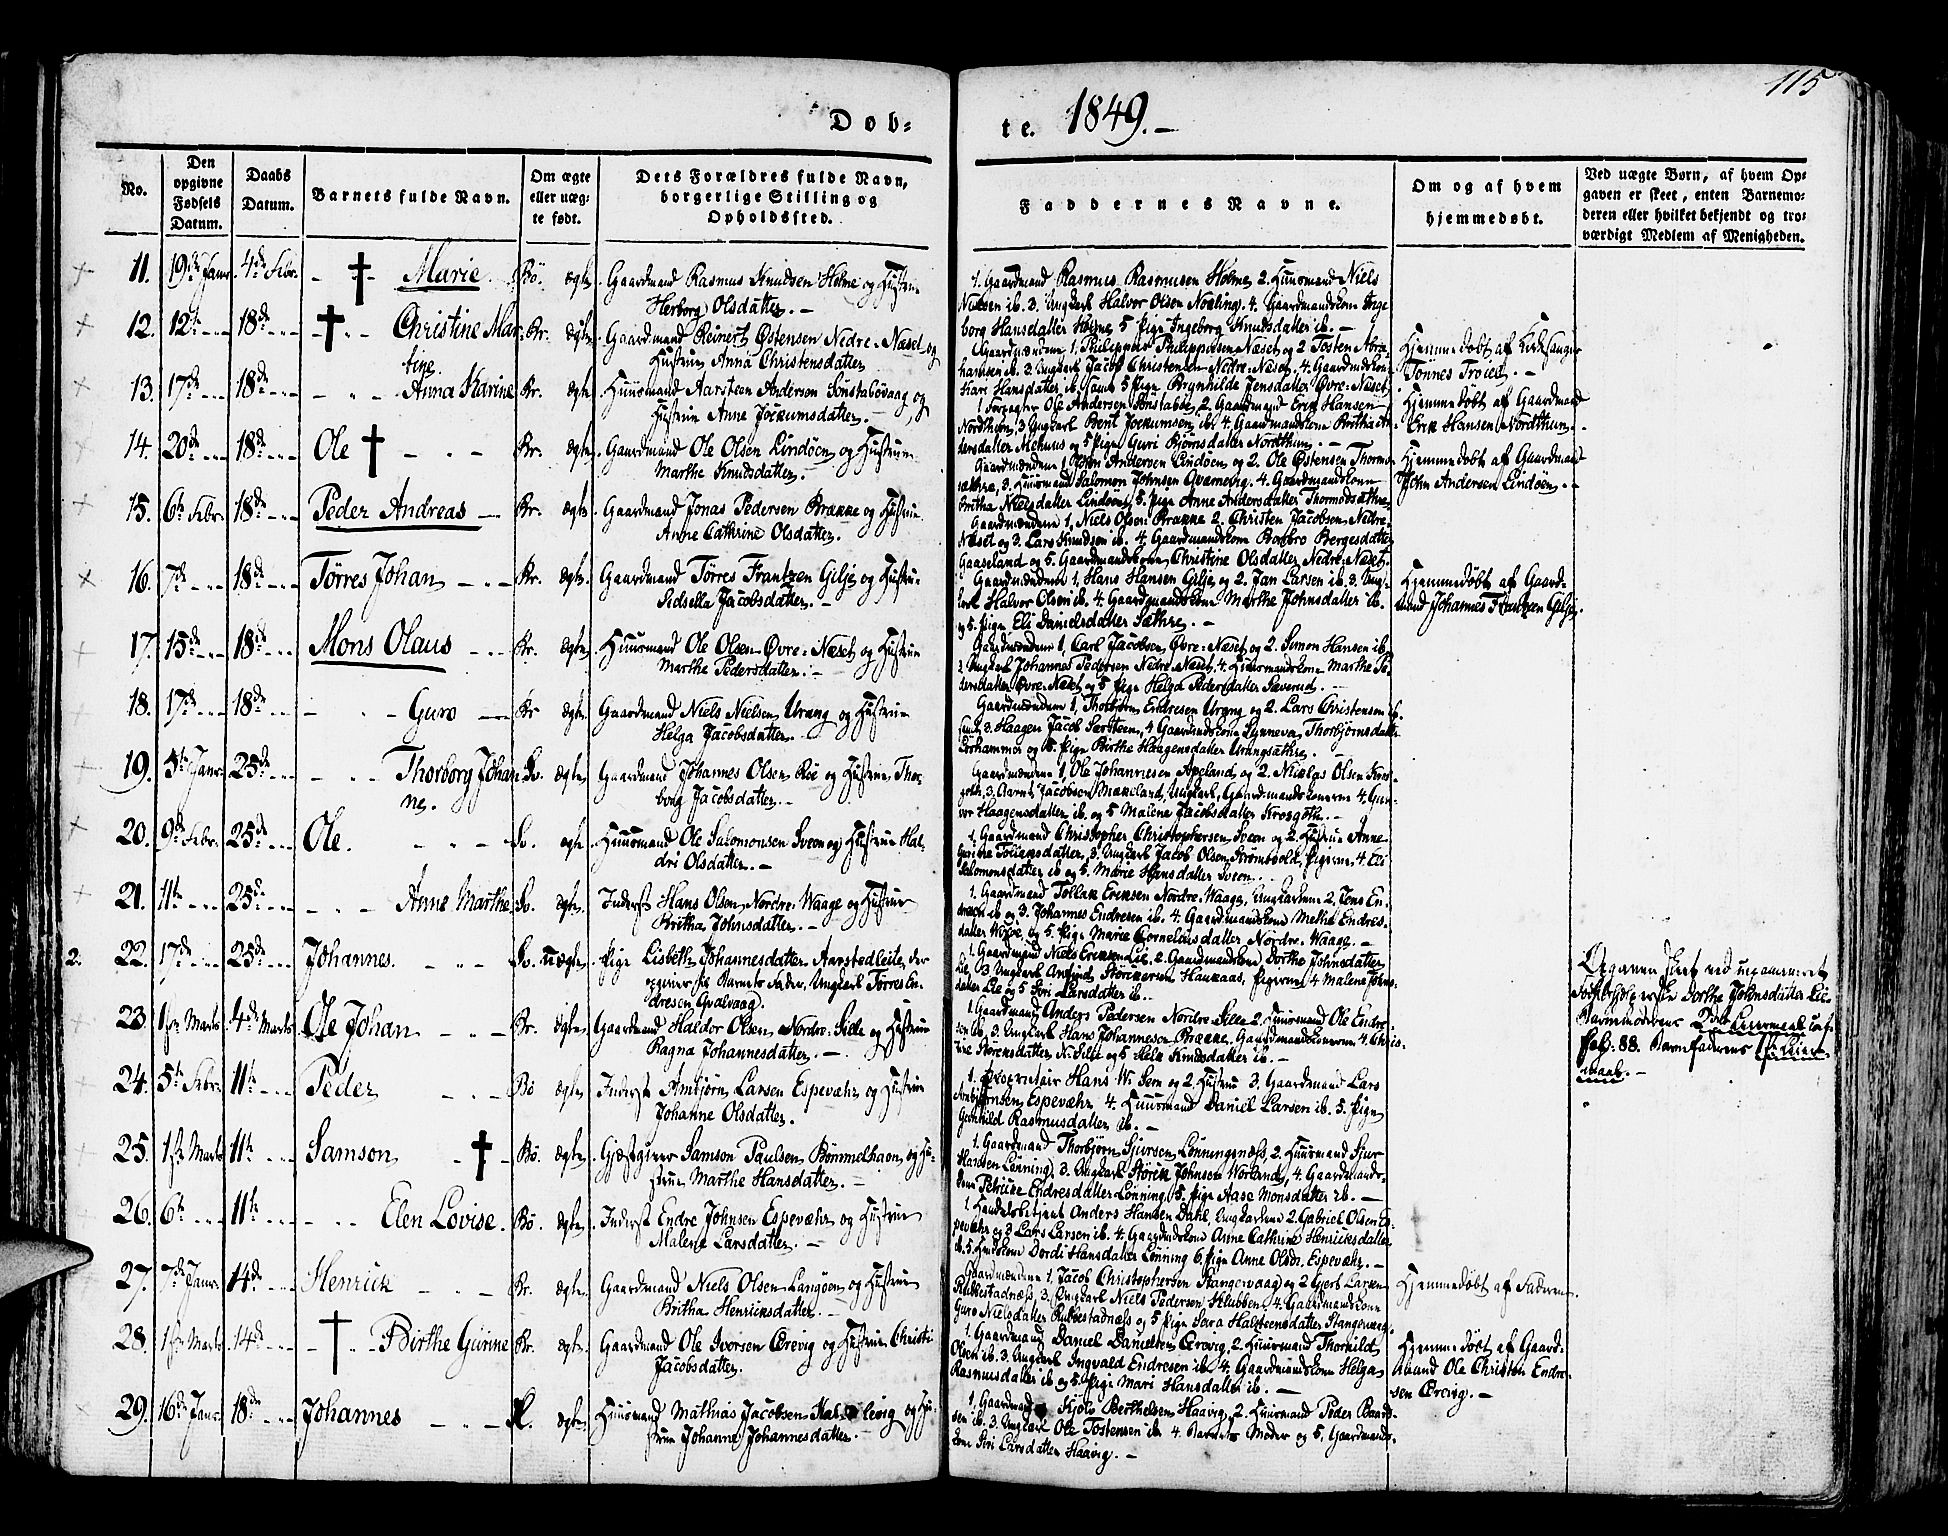 115
Døb-
te. 1849.-
No.
Den opgivne Fødsels Datum.
Daabs Datum.
Barnets fulde Navn.
Om ægte eller uægte født.
Dets Forældres fulde Navn, borgerlige Stilling og Opholdssted.
Faddernes Navne.
Om og af hvem hjemmedøbt.
Ved uægte Børn, af hvem Opgaven er skeet, enten Barnemoderen eller hvilket bekjendt og troværdigt Medlem af Menigheden.
11. 19de Janr. 4de Febr. Marie. Bö. ægte. Gaardmand Rasmus Knudsen Holme og Hustrue
Herborg Olsdatter.
1. Gaardmand Rasmus Rasmusen Holme 2. Huusmand Niels
Nielsen ib. 3. Ungkarl Halvor Olsen Nobling. 4. Gaardmandskone Inge
borg Hansdatter Holme 5 Pige Ingeborg Knudsdatter ib.
12. 12te 18de Christine Mar-
tine. Br. ægte. Gaardmand Reinert Østensen Nedre-Næset og
Hustrue Anna Christensdatter
Gaardmændene 1. Philippus Philippusen Næset og 2 Tosten Abra-
hamsen ib. 3. Ungkarl Jacob Christensen Nedre-Næset, 4. Gaardmandskone
Kari Hansdatter ib. samt 5 Pige Brynhilde Jensdatter Øvre-Næset
Hjemmedøbt af Kirkesanger
Tönnes Troied.
13. 17de 18de Anna Karine Br. ægte. Huusmand Aarsteen Andersen Sönstabövaag og
Hustrue Anne Jockumsdatter.
1 Forpagter Ole Andersen Sönstabö, 2 Gaardmand Erik Hansen
Nordthun, 3 Ungkarl Bent Jockumsen ib. 4 Gaardmandskone Britha An-
dersdatter Mehuus og 5 Pige Guri Bjørnsdatter Nordthun.
Hjemmedøbt af Gaardmand
Erik Hansen Nordthun.
14. 20de 18de Ole Br. ægte. Gaardmand Ole Olsen Lindöen og Hustrue
Marthe Knudsdatter.
Gaardmændene 1 John Andersen Lindöen og 2. Ole Østensen Thormo-
sæthre, 3. Huusmand Salomon Johnsen Qvernevig. 4. Gaardmandskone
Britha Nielsdatter Lindöen, 5. Pige Anne Andersdatter Thormodsæthre.
Hjemmedøbt af Gaardmand
John Andersen Lindöen.
15. 6te Febr. 18de Peder Andreas Br. ægte. Gaardmand Jonas Pedersen Brække og Hustrue
Anne Cathrine Olsdatter.
Gaardmændene 1. Niels Olsen Brække 2. Christen Jacobsen Nedre-
Næset og 3. Lars Knudsen ib. 4. Gaardmandskone Barbro Bergesdatter
Gaaseland og 5. Gaardmandskone Christine Olsdatter Nedre-Næset.
16. 7de 18de Törres Johan Br. ægte. Gaardmand Törres Frantzen Gilje og Hustrue
Sidsella Jacobsdatter.
Gaardmændene 1, Hans Hansen Gilje og 2. Jan Larsen ib. 3. Ung-
karl Halvor Olsen ib. 4. Gaardmandskone Marthe Johnsdatter ib.
og 5. Pige Eli Danielsdatter Sæthre.
Hjemmedøbt af Gaard-
mand Johannes Frantzen Gilje.
17. 15de 18de Mons Olaus Br. ægte. Huusmand Ole Olsen Øvre-Næset og Hustrue
Marthe Pedersdatter.
Gaardmændene 1, Carl Jacobsen Øvre-Næset og 2. Simon Hansen ib.
3. Ungkarl Johannes Pedersen Nedre Næset, 4. Huusmandskone Marthe Pe-
dersdatter Øvre-Næset og 5 Pige Helga Pedersdatter Sæverud.
18. 17de 18de Guro Br ægte. Gaardmand Niels Nielsen Urang og Hustrue
Helga Jacobsdatter.
Gaardmændene 1, Thorbjörn Endresen Urang og 2. Lars Christensen ib.
samt 3. Haagen Jacob Serstsen, 4 Gaardmandskone Synneva Thorbjörnsdatter
Torhammer og 5. Pige Birthe Haagensdatter Urangsæthre.
19. 5te Janr. 25de Thorborg Johan-
ne. Sv. ægte. Gaardmand Johannes Olsen Röe og Hustrue Thor-
borg Jacobsdatter.
Gaardmændene 1, Ole Johannesen Apeland og 2. Nicolas Olsen Kros-
goth, 3, Aarne Jacobsen Mækeland, Ungkarl, Gaardmandskonerne 4, Gun-
vor Haagensdatter ib. og 5 Malene Jacobsdatter Krosgoth.
20. 9de Febr. 25de Ole. Sv. ægte. Huusmand Ole Salomonsen Sveen og Hustrue Hal-
dri Olsdatter.
1. Gaardmand Christopher Christophersen Sveen og 2. Hustrue Anne-
Gurine Tollefsdatter, 3. Ungkarl Jacob Olsen Strömsvold, Pigerne, 4. Eli
Salomonsdatter ib og 5. Marie Hansdatter Sveen.
21. 11te 25de Anne Marthe Sv. ægte. Inderst Hans Olsen Nordre-Waage og Hustrue
Britha Johnsdatter.
1. Gaardmand Tollak Ericksen Nordre-Waage, Ungkarlene 2. Jens En-
dresen ib og 3. Johannes Endresen ib. 4. Gaardmandskone Melkie Endres-
datter Wixöe, og 5. Pige Marie Corneliusdatter Nordre-Waage.
2. 22. 17de 25de Johannes. Sv. uægte. Pige Lisbeth Johannesdatter Aarstadleite, der
opgiver til Barnets Fader, Ungkarl Törres En-
dresen Qvalvaag.
1. Gaardmand Niels Ericksen Lie, 2. Gaardmandskone Dorthe Johnsdatter
Lie, 3 Ungkarl Anfind Störkersen Haukaas, Pigerne 4 Malene Johns-
datter Lie og 5 Siri Larsdatter ib.
Opgaven skeet ved examineret
Jordemoder Dorthe Johnsdatter Lie.
Barnemoderens 2det Leiermaal, cnf.
pag: 88. Barnefaderens 1ste Leier-
maal.
23. 1ste Marts 4de Marts Ole Johan Br. ægte. Gaardmand Haldor Olsen Nordre-Sille og Hustrue
Ragna Johannesdatter.
1. Gaardmand Anders Pedersen Nordre-Sille 2. Huusmand Ole Endre-
sen ib. 3. Ungkarl Hans Johannesen Brække, Gaardmandskonerne 4. Chris-
tine Størksdatter N. Sille og 5 Hele Knudsdatter ib.
24. 5te Febr. 11te Peder Bö ægte. Inderst Ambjörn Larsen Espevæhr og Hustrue
Johanne Olsdatter.
1. Proprietair Hans W. Sem og 2. Hustrue 3. Gaardmand Lars
Ambjörnsen Espevæhr 4. Huusmand Daniel Larsen ib. 5. Pige
Gunhild Rasmusdatter ib.
25. 1ste Marts 11te Samson Bö. ægte. Gjæstgiver Samson Paulsen Bömmelhavn og Hu-
strue Marthe Hansdatter.
1. Gaardmand Thorbjörn Sjursen Lönningsnæss, 2. Huusmand Sjur
Hansen Lönning, 3. Ungkarl Störck Johnsen Vorland, 4. Gaardmands-
kone Petricke Endresdatter Lönning, 5. Pige Aase Monsdatter ib.
26. 6te 11te Elen Lovise. Bö. ægte. Inderst Endre Johnsen Espevæhr og Hustrue
Malene Larsdatter.
1. Handelsbetjent Anders Hansen Dahl, Ungkarlene 2. Gabriel Olsen Es-
pevæhr og 3 Lars Larsen ib. 4. Gaardmandskone Anne Cathrine Henricksdatter
ib. 5. Huuskone Dordi Hansdatter Lönning 6. Pige Anne Olsdr. Espevæhr.
27. 7de Janr. 14de Henrick Br. ægte. Gaardmand Niels Olsen Langöen og Hustrue
Britha Henricksdatter.
Gaardmændene 1. Jacob Christophersen Stangervaag og 2 Gjert Larsen
Rubbestadnæss, 3. Ungkarl Niels Pedersen Klubben. 4. Gaardmandskone
Guro Nielsdatter Rubbestadnæss og 5 Pige Sara Halsteensdatter Stangervaag.
Hjemmedøbt af Faderen.
28. 1ste Marts 14de Birthe Gurine Br. ægte. Gaardmand Ole Iversen Ørevig og Hustrue Christi
Jacobsdatter.
1. Gaardmand Daniel Danielsen Ørevig, 2. Huusmand Thorkild
Olsen ib. 3. Ungkarl Ingvald Endresen ib. 4. Gaardmandskone Helga
Rasmusdatter ib og 5. Pige Mari Hansdatter ib.
Hjemmedøbt af Gaard-
mand Ole Christen Endre-
sen Ørevig.
29. 16de Janr. 18de Johannes ægte. Huusmand Mathias Jacobsen og Hu-
strue Johanne Johannesdatter.
1. Gaardmand Kjöls Berthelsen Haavig, 2. Huusmand Peder Baard-
sen ib. 3. Ungkarl Ole Tostensen ib. 4. Barnets Moder og 5. Gaardmands-
kone Siri Larsdatter Haavig.